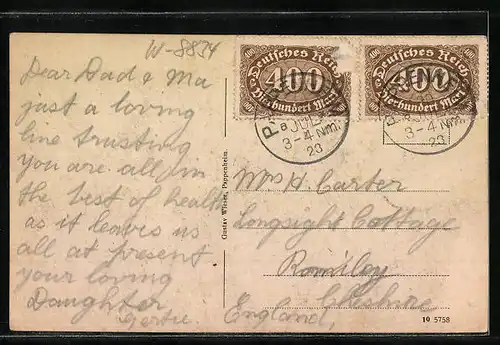 W-8834
Dear Dad & Ma
just a loving
line trusting
you are all in
the best of health
as it leaves us
all at present
your loving
Daughter
Gertie.
Deutsches Reich
400
Vierhundert Mark
Deutsches Reich
400
Vierhundert Mark
3-4 Nm.
23
3-4 Nm.
23
Gustav Wieser, Pappenheim.
Mrs H. Carter
Longsight Cottage
Romiley
Cheshire
England,
10 5758